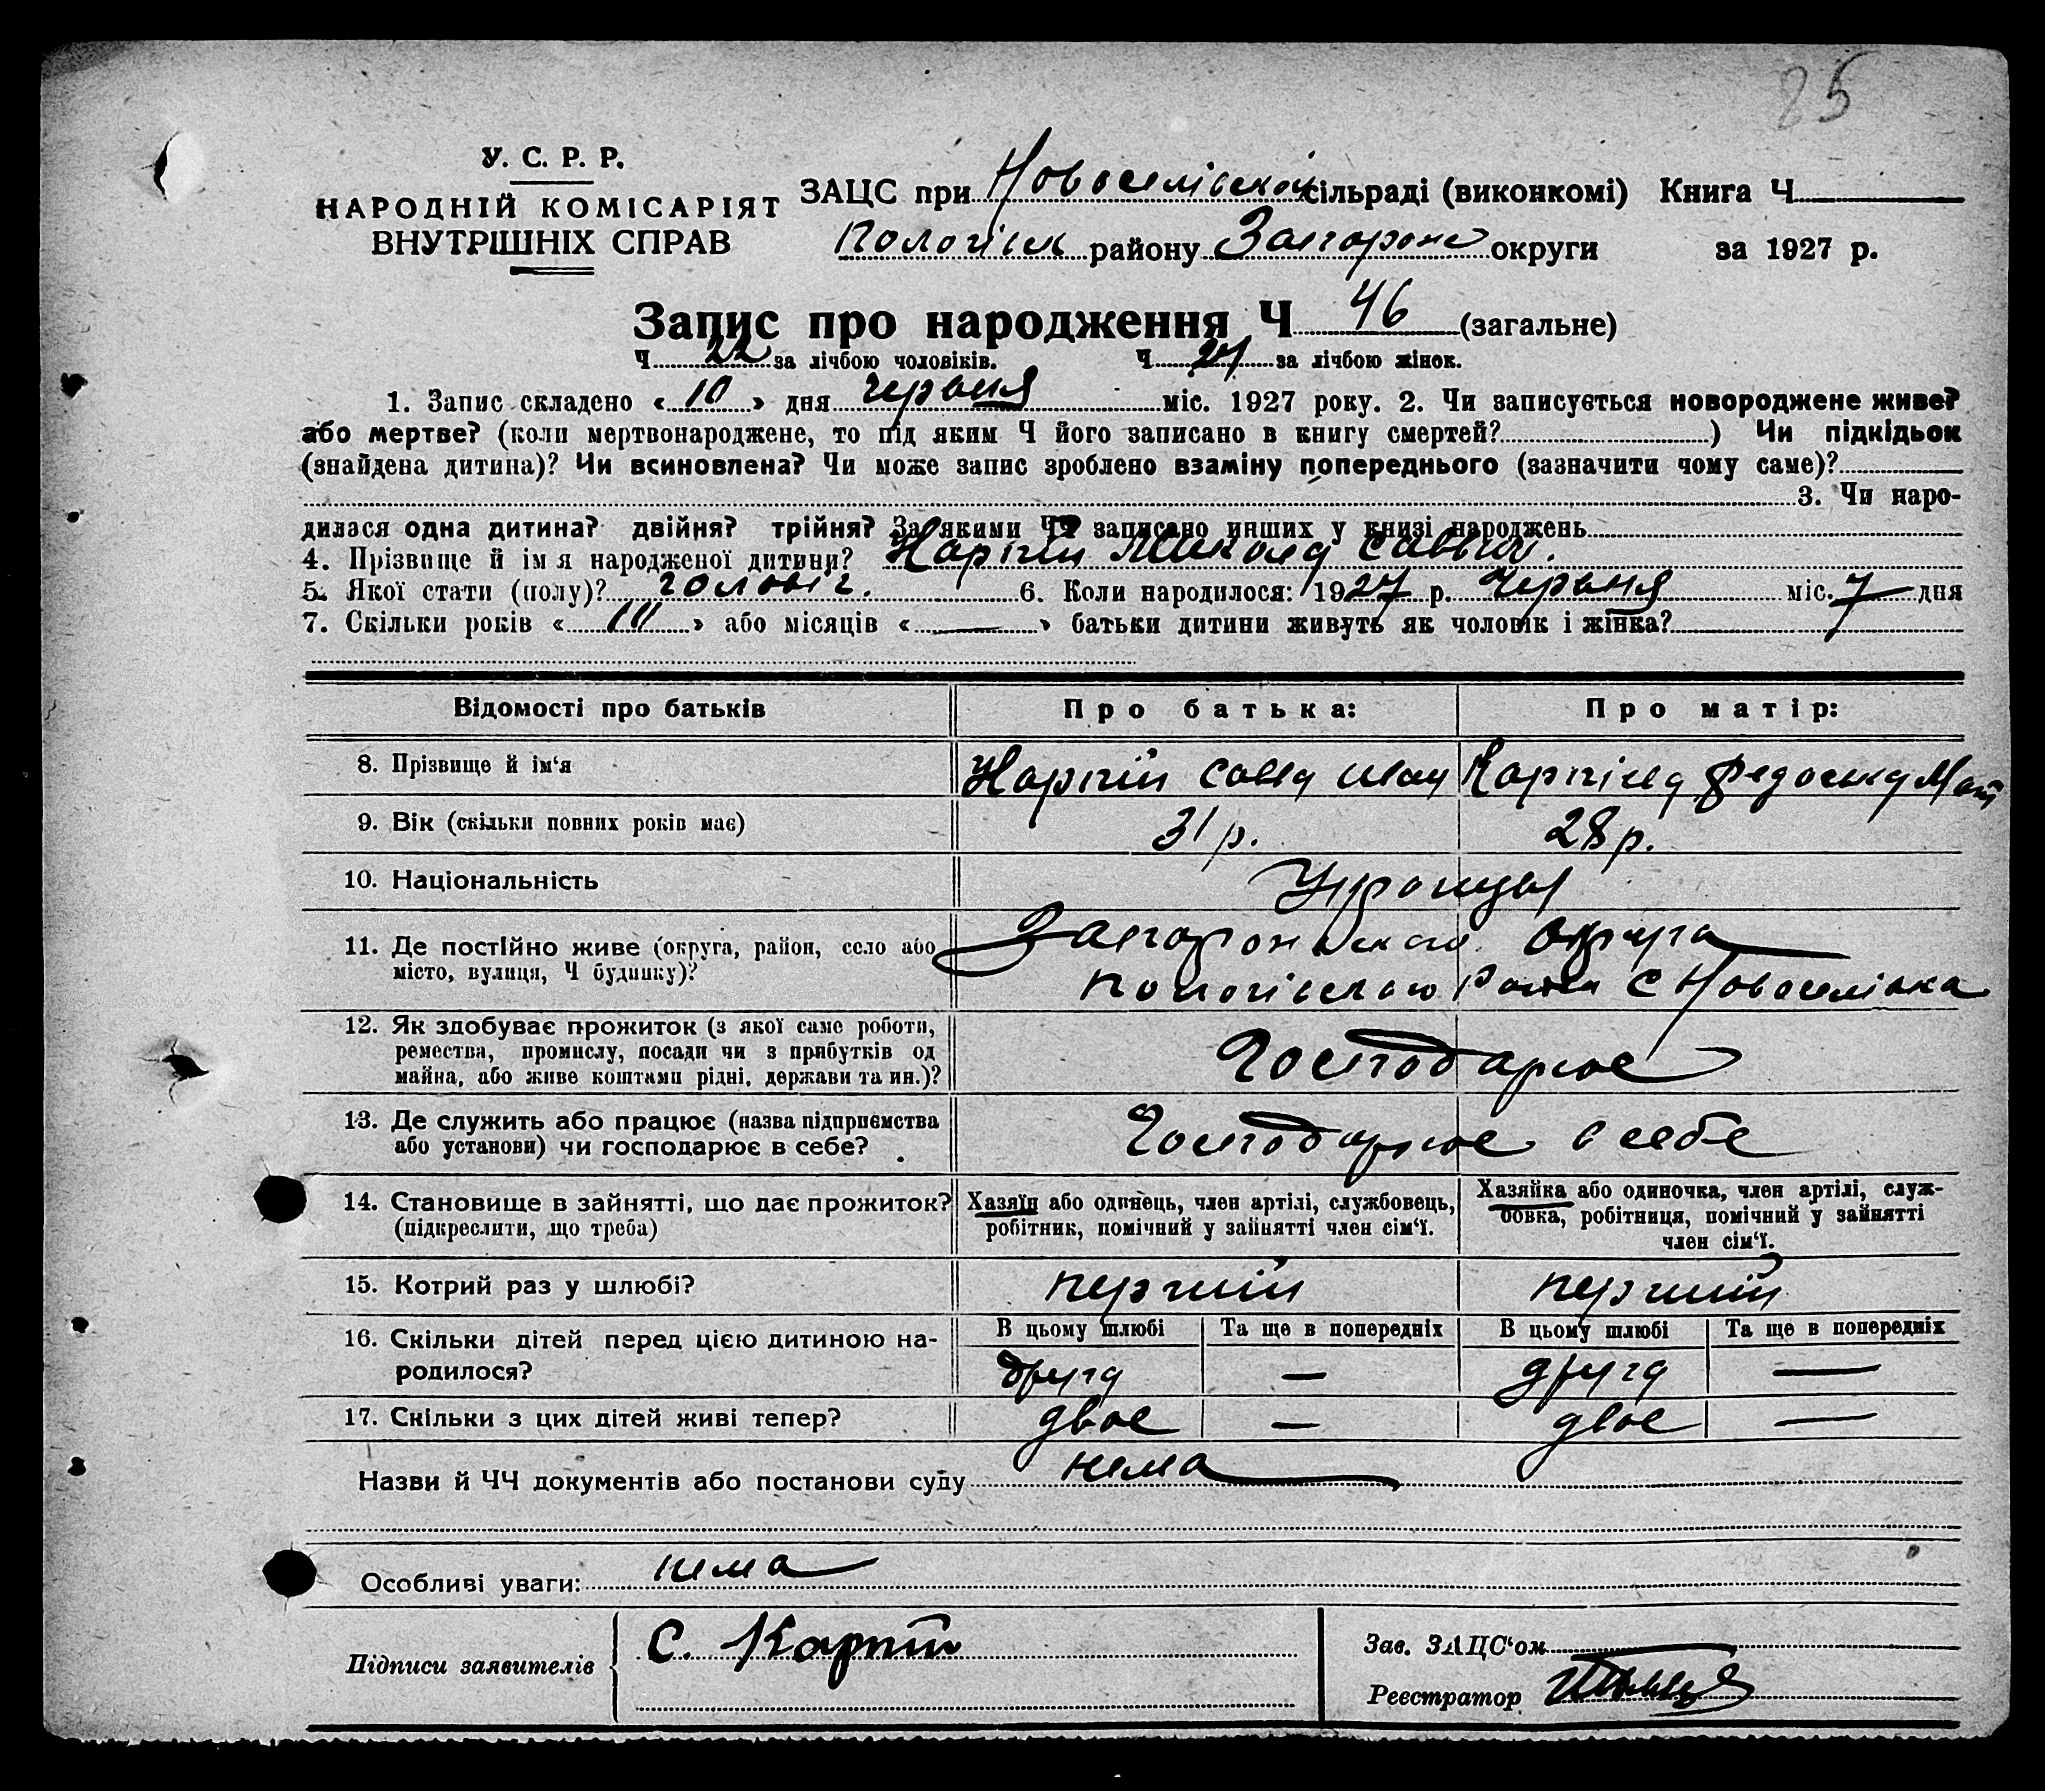 25
У. С. Р. Р.
НАРОДНІЙ КОМІСАРІЯТ
ВНУТРІШНІХ СПРАВ
ЗАЦС при Новоселівской сільраді (виконкомі) Книга Ч
Пологівск району Запорожс округи за 1927 р.
Запис про народження Ч 46 (загальне)
Ч 22 за лічбою чоловіків. Ч 24 за лічбою жінок.
1. Запис складено « 10 » дня червня міс. 1927 року. 2. Чи записується новороджене живе?
або мертве? (коли мертвонароджене, то під яким Ч його записано в книгу смертей? ) Чи підкідьок
(знайдена дитина)? Чи всиновлена? Чи може запис зроблено взаміну попереднього (зазначити чому саме)?
3. Чи наро-
дилася одна дитина? двійня? трійня? За якими ЧЧ записано инших у книзі народжень
4. Прізвище й ім я народженої дитини? Карпій Микола Саввич.
5. Якої стати (полу)? чоловіч. 6. Коли народилося: 1927 р. Червня міс. 7 дня
7. Скільки років « III » або місяців « — » батьки дитини живуть як чоловік і жінка?
Відомості про батьків Про батька: Про матір:
8. Прізвище й ім‘я Карпій Сава Карпієва Федосия
9. Вік (скільки повних років має) 31 р. 28 р.
10. Національність Украинцы
11. Де постійно живе (округа, район, село або Запорожського Округа
місто, вулиця, Ч будинку)? Пологівского Района С Новоселівка
12. Як здобуває прожиток (з якої саме роботи,
ремества, промислу, посади чи з прибутків од
майна, або живе коштами рідні, держави та ин.)? Господарює
13. Де служить або працює (назва підприємства
або установи) чи господарює в себе? Господарює в себе
14. Становище в зайнятті, що дає прожиток? Хазяїн або одинець, член артілі, службовець, Хазяйка або одиночка, член артілі, служ-
(підкреслити, що треба) робітник, помічний у зайнятті член сім‘ї. бовка, робітниця, помічний у зайнятті
член сім‘ї.
15. Котрий раз у шлюбі? перший перший
16. Скільки дітей перед цією дитиною на- В цьому шлюбі Та ще в попередніх В цьому шлюбі Та ще в попередніх
родилося? друга — друга —
17. Скільки з цих дітей живі тепер? двое — двое —
Назви й ЧЧ документів або постанови суду нема
Особливі уваги: нема
Підписи заявителів С. Карпій
Зав. ЗАЦС‘ом
Реєстратор